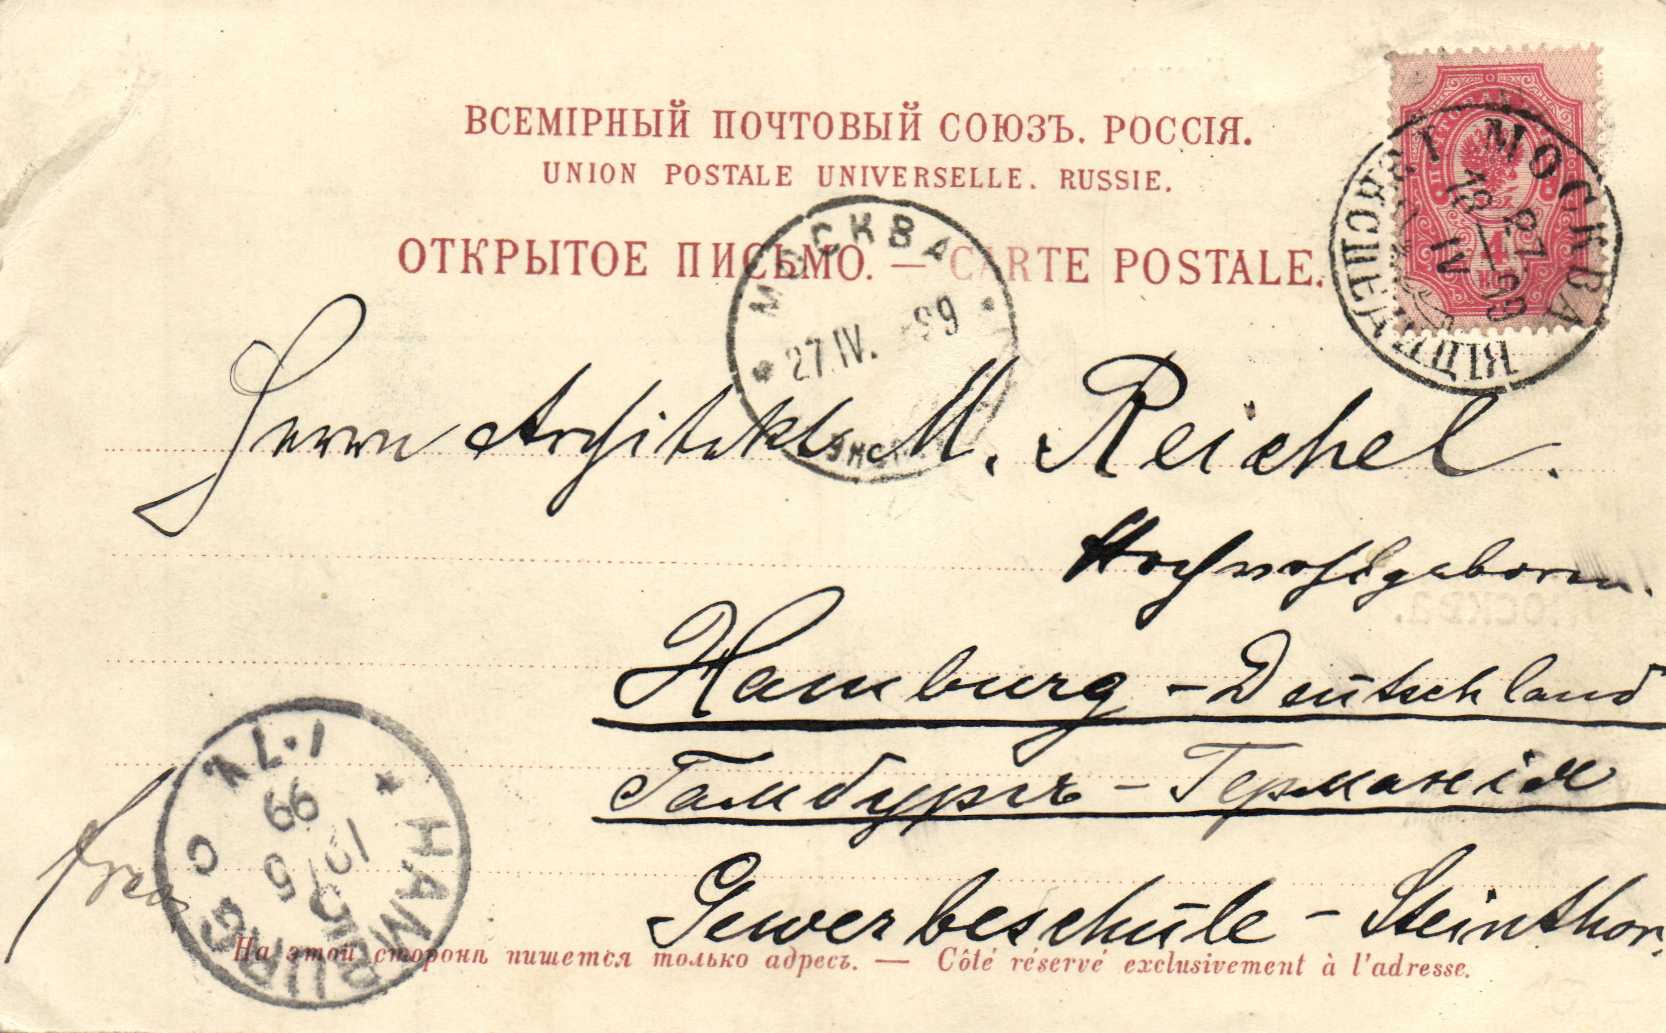 ВСЕМІРНЫЙ ПОЧТОВЫЙ СОЮЗЪ. РОССІЯ.
UNION POSTALE UNIVERSELLE. RUSSIE.
ОТКРЫТОЕ ПИСЬМО. — CARTE POSTALE.
МОСКВА
18 27/IV 99
МОСКВА
27.IV. 99
Herrn Architekt M. Reichel.
Hochwohlgeboren.
Hamburg - Deutschland
Гамбургъ - Германія
Gewerbeschule - Steinthor.
HAMBURG
10/5
5
99
На этой сторонѣ пишется только адресъ. — Côté réservé exclusivement à l'adresse.